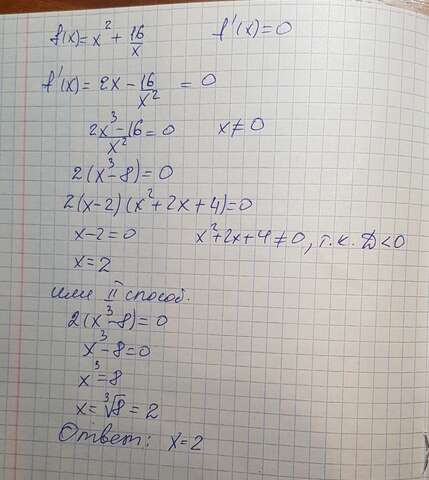 f(x)=x²+16/x f'(x)=0
f'(x)=2x-16/x²=0
2x³-16/x²=0 x≠0
2(x³-8)=0
2(x-2)(x²+2x+4)=0
x-2=0 x²+2x+4≠0, т.к. D<0
x=2
или II способ.
2(x³-8)=0
x³-8=0
x³=8
x=∛8=2
Ответ: x=2